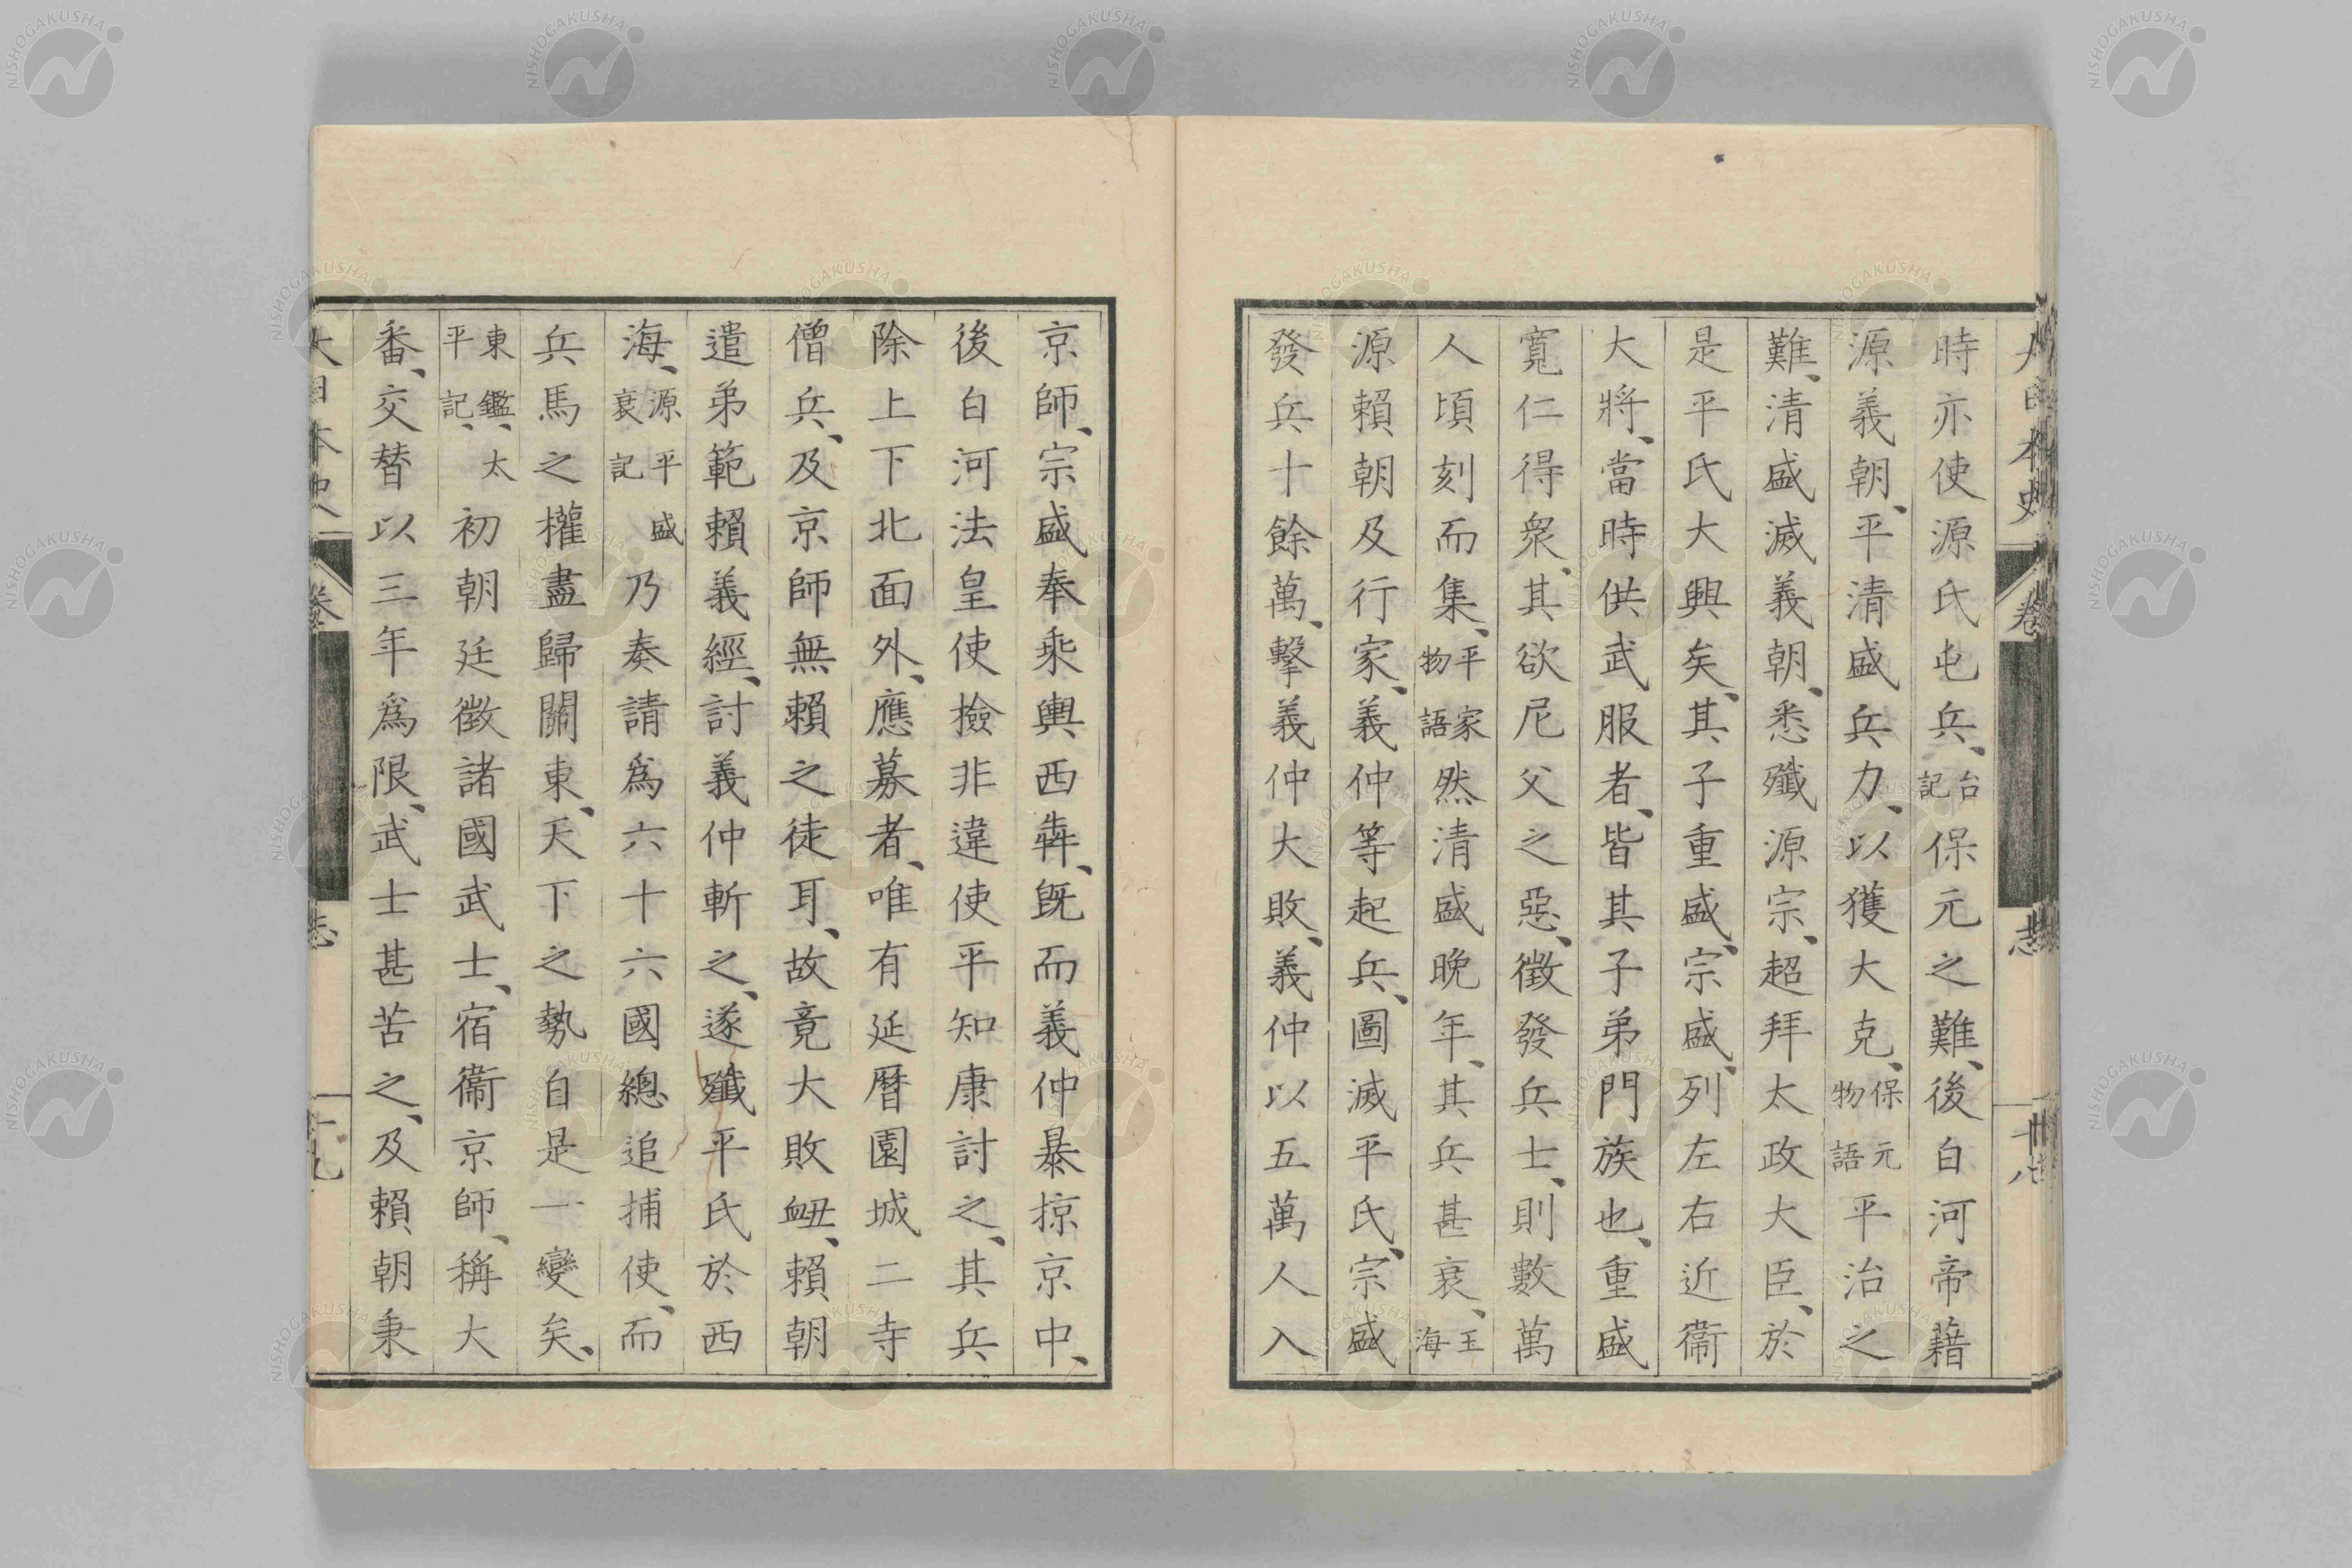 大日本史 卷 志 十八
時亦使源氏屯兵、台記保元之難、後白河帝藉
源義朝、平清盛兵力、以獲大克、保元物語平治之
難、清盛滅義朝、悉殲源宗、超拜太政大臣、於
是平氏大興矣、其子重盛、宗盛、列左右近衞
大將、當時供武服者、皆其子弟門族也、重盛
寬仁得衆、其欲尼父之惡、徵發兵士、則數萬
人頃刻而集、平家物語然清盛晚年、其兵甚衰、玉海
源賴朝及行家、義仲等起兵、圖滅平氏、宗盛
發兵十餘萬、擊義仲大敗、義仲以五萬人入
京師、宗盛奉乘輿西犇、旣而義仲暴掠京中、
後白河法皇使檢非違使平知康討之、其兵
除上下北面外、應募者、唯有延曆園城二寺
僧兵、及京師無賴之徒耳、故竟大敗衄、賴朝
遣弟範賴義經、討義仲斬之、遂殲平氏於西
海、源平盛衰記乃奏請爲六十六國總追捕使、而
兵馬之權盡歸關東、天下之勢自是一變矣、
東鑑、太平記、初朝廷徵諸國武士、宿衞京師、稱大
番、交替以三年爲限、武士甚苦之、及賴朝秉
大日本史 卷 志 十九
NISHOGAKUSHA